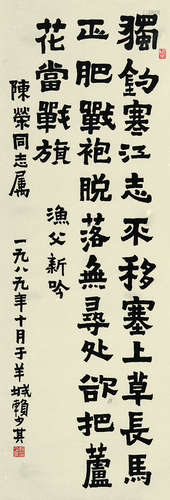 獨釣塞江志不移塞上草長馬
正肥戰袍脱落無尋处欲把蘆
花當戰旗
漁父新吟
陳榮同志属
一九八九年十月于羊城賴少其